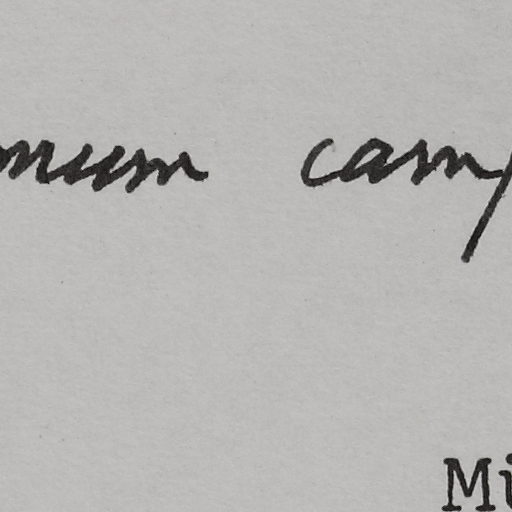 mum camp
Mi